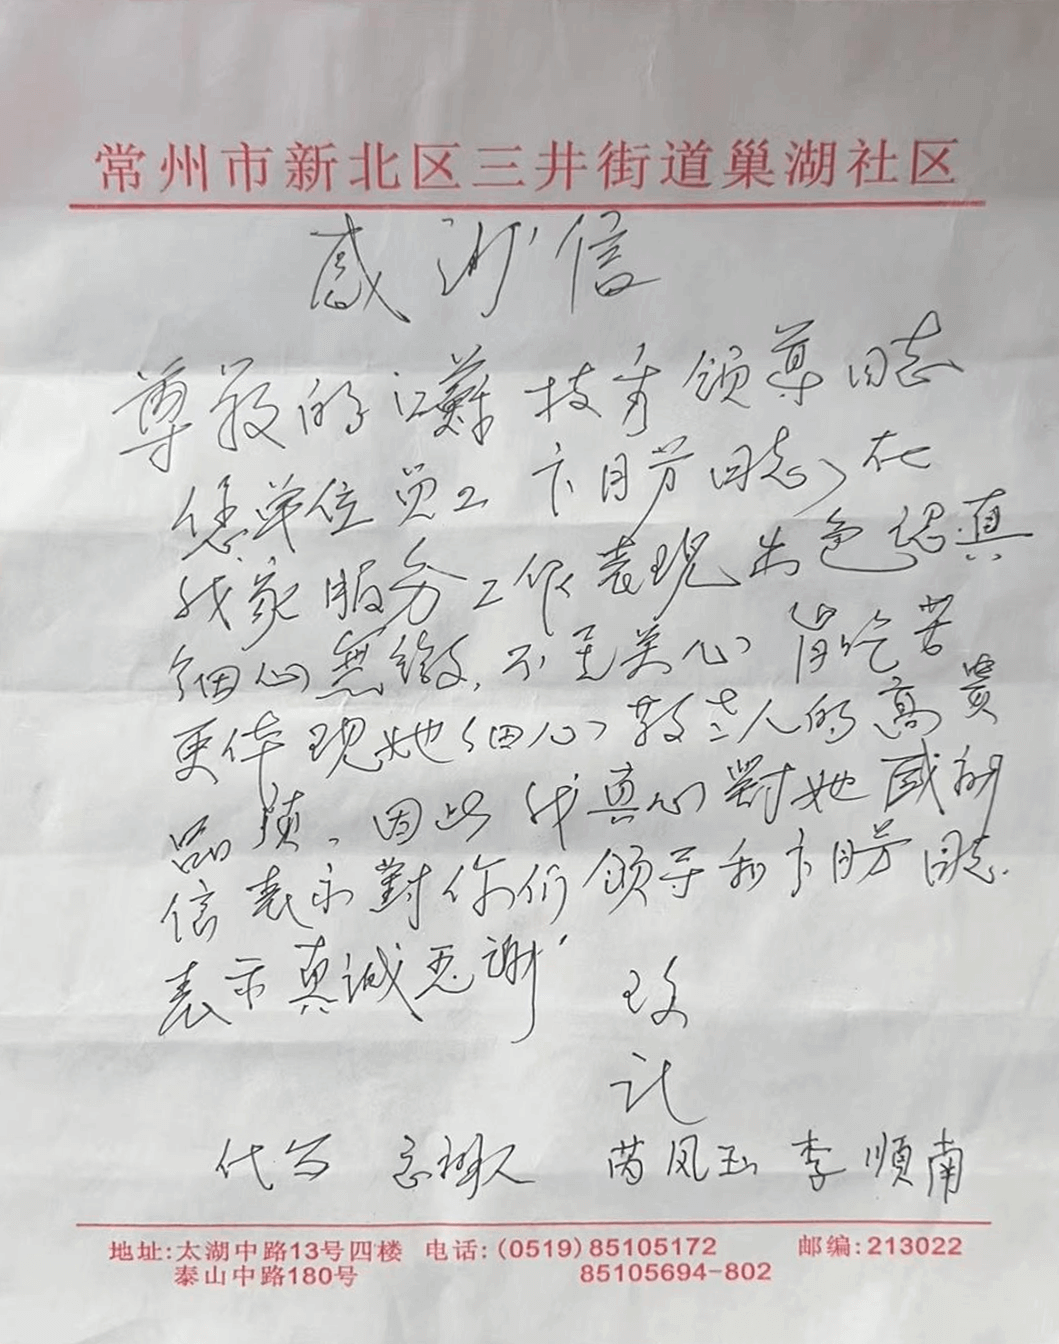 常州市新北区三井街道巢湖社区
感谢信
尊敬的江蘇技方领導同志
您单位员工卞月芳同志，在
我家服务工作表现出色認真
细心無微.不至关心肯吃苦
更体现她细心敬老人的高貴
品质、因此我真心對她感謝
信表示對你们领导和卞月芳同志
表示真誠感謝
致
礼
代写 感謝人 芮凤玉 李順南
地址:太湖中路13号四楼 电话:(0519)85105172 邮编:213022
泰山中路180号 85105694-802